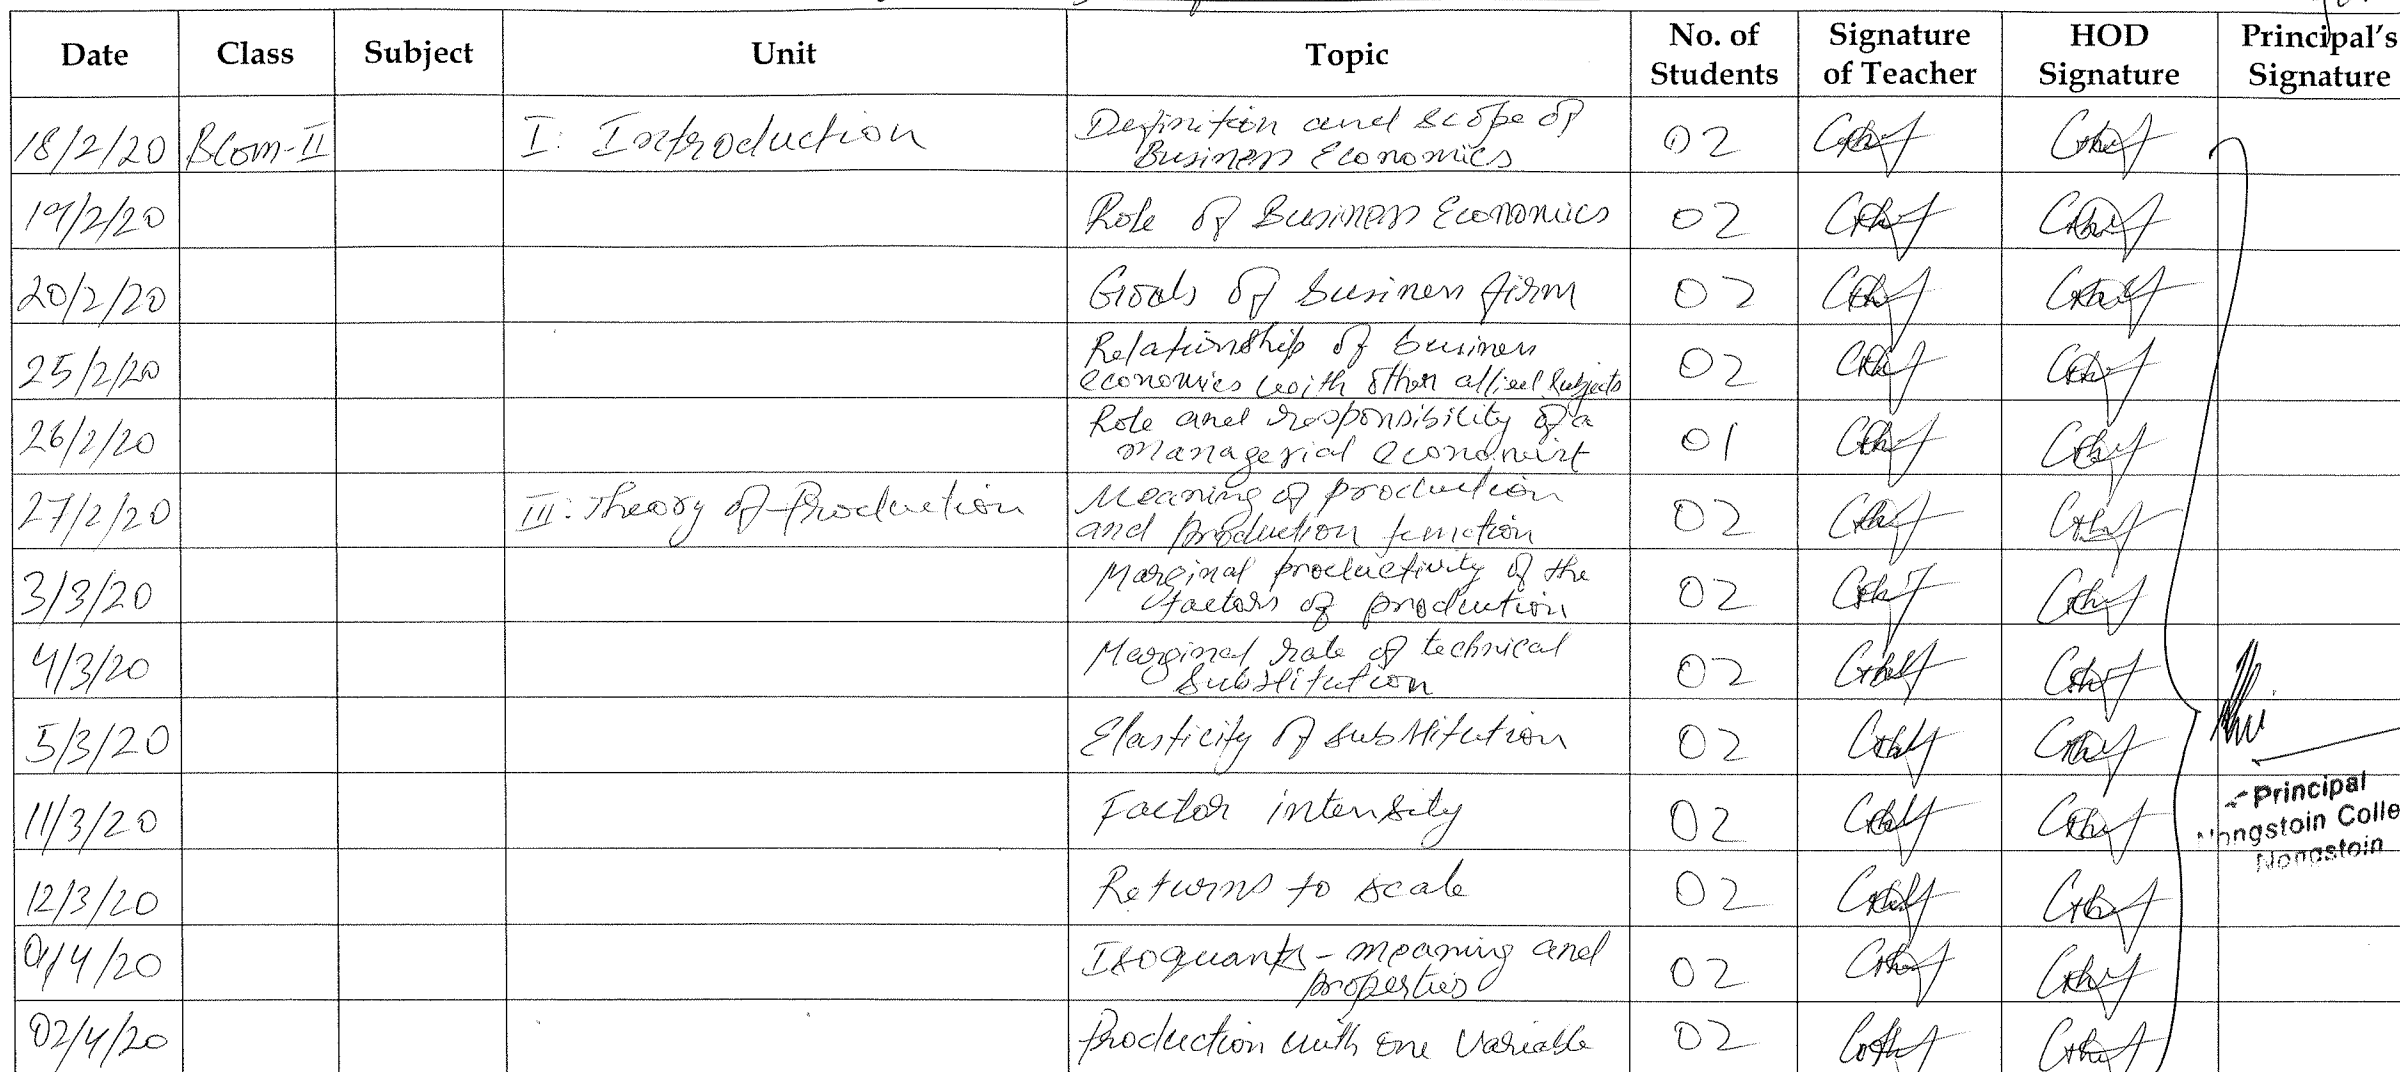 Date Class Subject Unit Topic No. of Students Signature of Teacher HOD Signature Principal's Signature
18/2/20 BCom-II I: Introduction Definition and scope of Business Economics 02
19/2/20 Role of Business Economics 02
20/2/20 Goals of business firm 02
25/2/20 Relationship of business economics with other allied subjects 02
26/2/20 Role and responsibility of a managerial economist 01
27/2/20 III: Theory of Production Meaning of production and production function 02
3/3/20 Marginal productivity of the factors of production 02
4/3/20 Marginal rate of technical substitution 02
5/3/20 Elasticity of substitution 02
11/3/20 Factor intensity 02
12/3/20 Returns to scale 02
01/4/20 Isoquants - meaning and properties 02
02/4/20 Production with one variable 02
Principal
Nongstoin Colle
Nongstoin